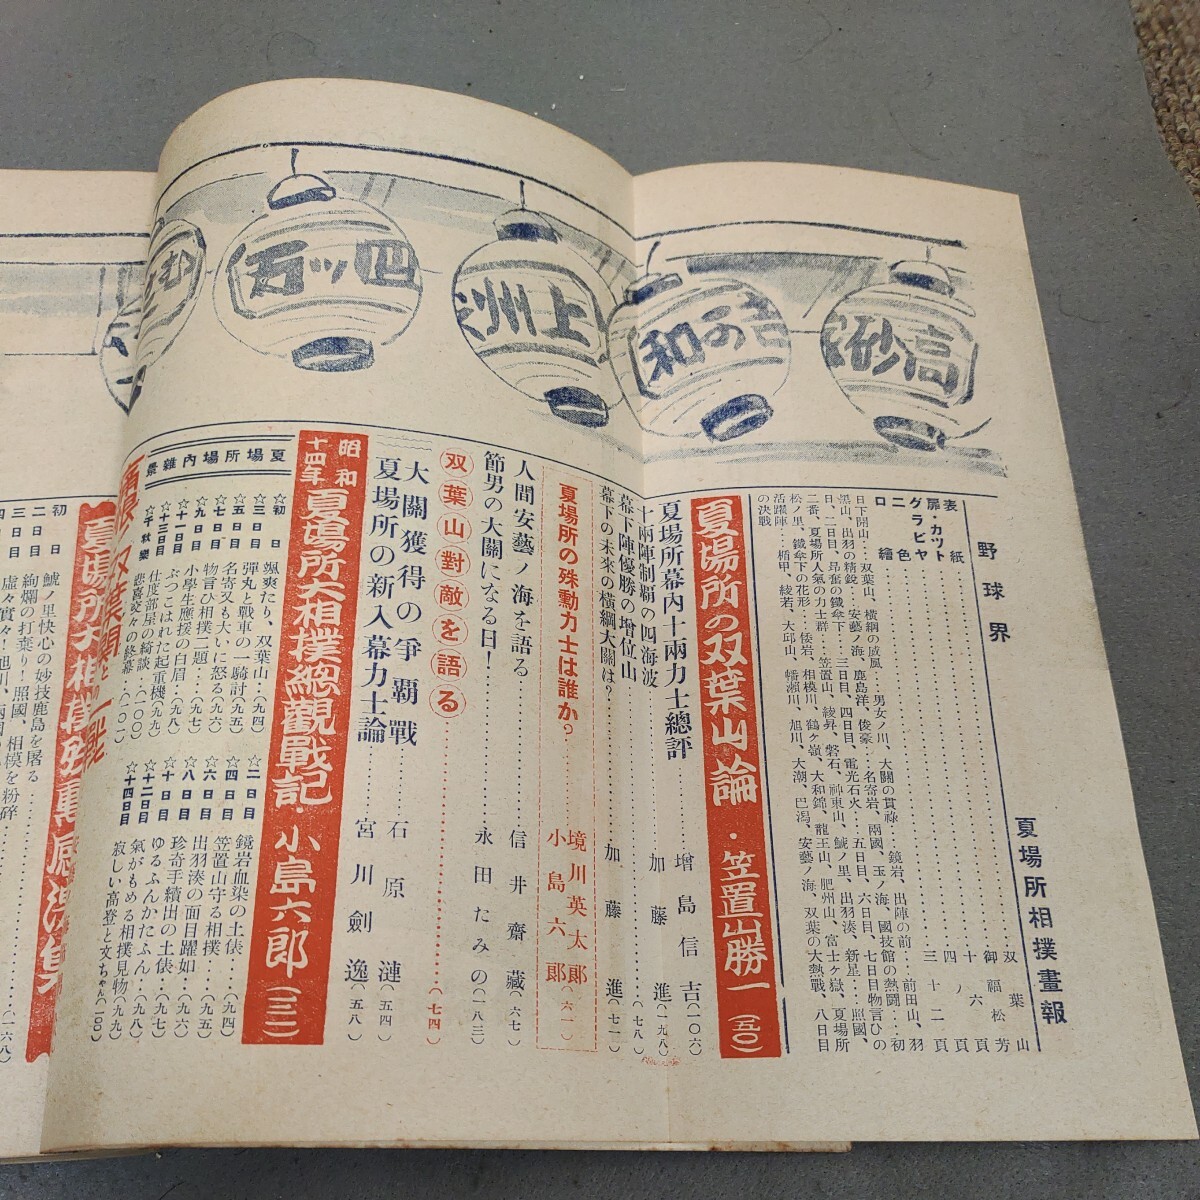 高砂
和
上州
四ツ万
野球界
夏場所相撲畫報
表紙 双葉山
扉・カット 御福松芳
グラビヤ 十六頁
二色 四ノ頁
口繪 三十二頁
日下開山…双葉山、橫綱の威風…男女ノ川、大關の貫祿…鏡岩、出陣の前…前田山、羽
黑山、出羽の精銳…安藝ノ海、鹿島洋、俊豪…名寄岩、兩國、玉ノ海、國技館の熱鬪…初
日、二日目、昂奮の鐵傘下…三日目、四日目、電光石火…五日目、六日目、七日目物言ひの
二番、夏場所人氣の力士群…笠置山、綾昇、磐石、神東山、鯱ノ里、出羽湊、新星…照國、
松ノ里、鐵傘下の花形…倭岩、相模川、鶴ヶ嶺、大和錦、龍王山、肥州山、富士ヶ嶽、夏場所
活躍陣…楯甲、綾若、大邱山、幡瀨川、旭川、大潮、巴潟、安藝ノ海、双葉の大熱戰、八日目
の決戰
夏場所の双葉山論・笠置山勝一(五〇)
夏場所幕內十兩力士總評…增島信吉(一〇六)
十兩陣制覇の四海波
幕下陣優勝の增位山…加藤進(一九八)
幕下の未來の橫綱大關は?…加藤進(七一)
夏場所の殊勳力士は誰か?…境川英太郞 小島六郞(六一)
人間安藝ノ海を語る…信井齋藏(六七)
節男の大關になる日!…永田たみの(一八三)
双葉山對敵を語る…(七四)
大關獲得の爭覇戰…石原漣(五四)
夏場所の新入幕力士論…宮川劍逸(五八)
昭和十四年 夏場所大相撲總觀戰記・小島六郎(三二)
夏場所場內雜景
☆初日 颯爽たり、双葉山(九四)
☆三日目 彈丸と戰車の一騎討(九五)
☆五日目 名寄又も大いに怒る(九六)
☆七日目 物言ひ相撲二題(九七)
☆九日目 小學生應援の白眉(九八)
☆十一日目 ぶつこはれた起重機(九九)
☆十三日目 仕度部屋の綺談(一〇〇)
☆千秋樂 悲喜交々の終幕(一〇一)
☆二日目 鏡岩血染の土俵(九四)
☆四日目 笠置山守る相撲(九五)
☆六日目 出羽湊の面目躍如(九六)
☆八日目 珍奇手續出の土俵(九七)
☆十日目 ゆるふんかたふん(九八)
☆十二日目 氣がもめる相撲見物(九九)
☆十四日目 寂しい高登と文ちゃん(一〇〇)
初日 鯱ノ里快心の妙技鹿島を屠る
二日目 絢爛の打棄り!照國、相模を粉碎
三日目 虛々實々!旭川、兩國
(一六八)